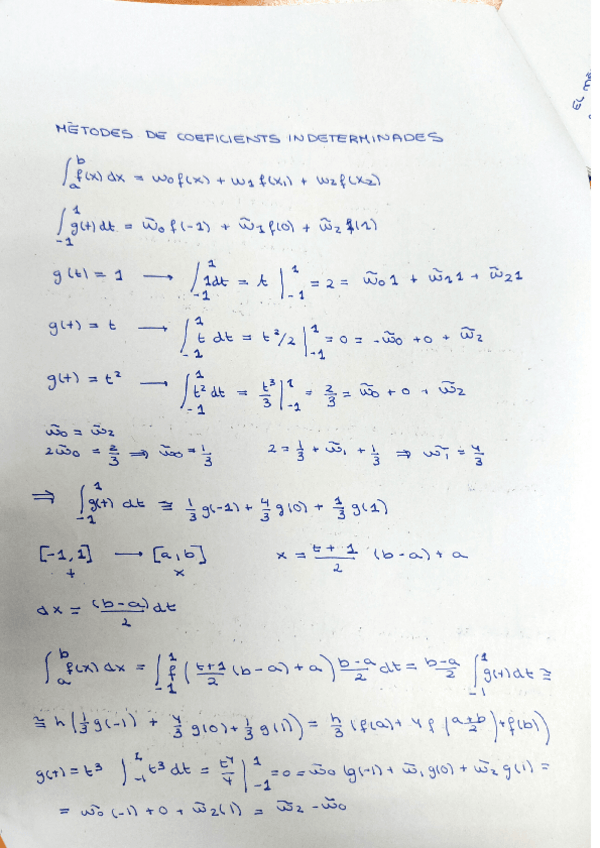 MÈTODES DE COEFICIENTS INDETERMINADES
∫_a^b f(x) dx = w0 f(x) + w1 f(x1) + w2 f(x2)
∫_-1^1 g(t) dt = w̃0 f(-1) + w̃1 f(0) + w̃2 f(1)
g(t) = 1 → ∫_-1^1 1dt = t |_-1^1 = 2 = w̃0 1 + w̃1 1 + w̃2 1
g(t) = t → ∫_-1^1 t dt = t²/2 |_-1^1 = 0 = -w̃0 + 0 + w̃2
g(t) = t² → ∫_-1^1 t² dt = t³/3 |_-1^1 = 2/3 = w̃0 + 0 + w̃2
w̃0 = w̃2
2w̃0 = 2/3 ⇒ w̃0 = 1/3 2 = 1/3 + w̃1 + 1/3 ⇒ w̃1 = 4/3
⇒ ∫_-1^1 g(t) dt ≅ 1/3 g(-1) + 4/3 g(0) + 1/3 g(1)
[-1,1] → [a,b] x = (t+1)/2 (b-a) + a
t x
dx = (b-a)/2 dt
∫_a^b f(x) dx = ∫_-1^1 f((t+1)/2 (b-a) + a) (b-a)/2 dt = (b-a)/2 ∫_-1^1 g(t) dt ≅
≅ h(1/3 g(-1) + 4/3 g(0) + 1/3 g(1)) = h/3 (f(a) + 4 f((a+b)/2) + f(b))
g(t) = t³ ∫_-1^1 t³ dt = t⁴/4 |_-1^1 = 0 = w̃0 (g(-1) + w̃1 g(0) + w̃2 g(1) =
= w̃0 (-1) + 0 + w̃2(1) = w̃2 - w̃0